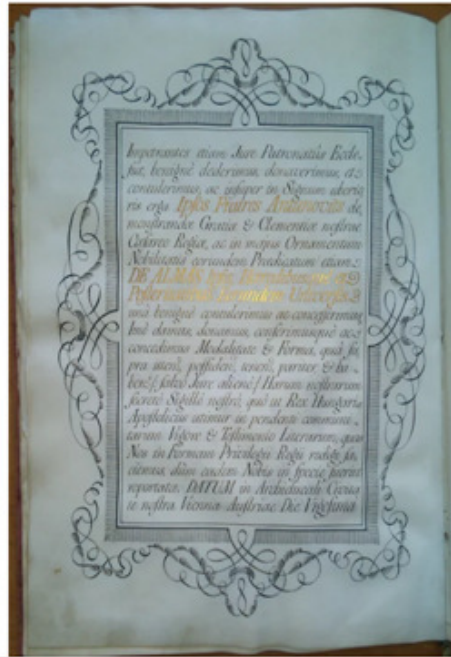 Impetrantes etiam Jure Patronatûs Eccle-
siæ, benignè dederimus, donaverimus, et
contulerimus, ac insuper in Signum uberio-
ris erga Ipsos Fratres Antonovits de-
monstrandæ Gratiæ & Clementiæ nostræ
Cæsareo Regiæ, ac in majus Ornamentum
Nobilitatis eorundem Prædicatum etiam
DE ALMÁS Ipsis, Hæredibusque &
Posteritatibus Eorundem Universis
unà benignè contulerimus ac concesserimus,
Imò damus, donamus, conferimusque ac
concedimus Modalitate & Formâ, quâ su-
pra utend, possidend, tenend, pariter, & ha-
bend / salvo Jure alieno / Harum nostrarum
secretò Sigillô nostrô, quô ut Rex Hungariæ
Apostolicus utimur in pendenti communi-
tarum Vigore & Testimonio Literarum, quas
Nos in Formam Privilegii Regii redigi fa-
ciemus, dùm eædem Nobis in specie fuerint
reportatæ. DATUM in Archiducali Civita-
te nostra Vienna Austriæ Die Vigesima